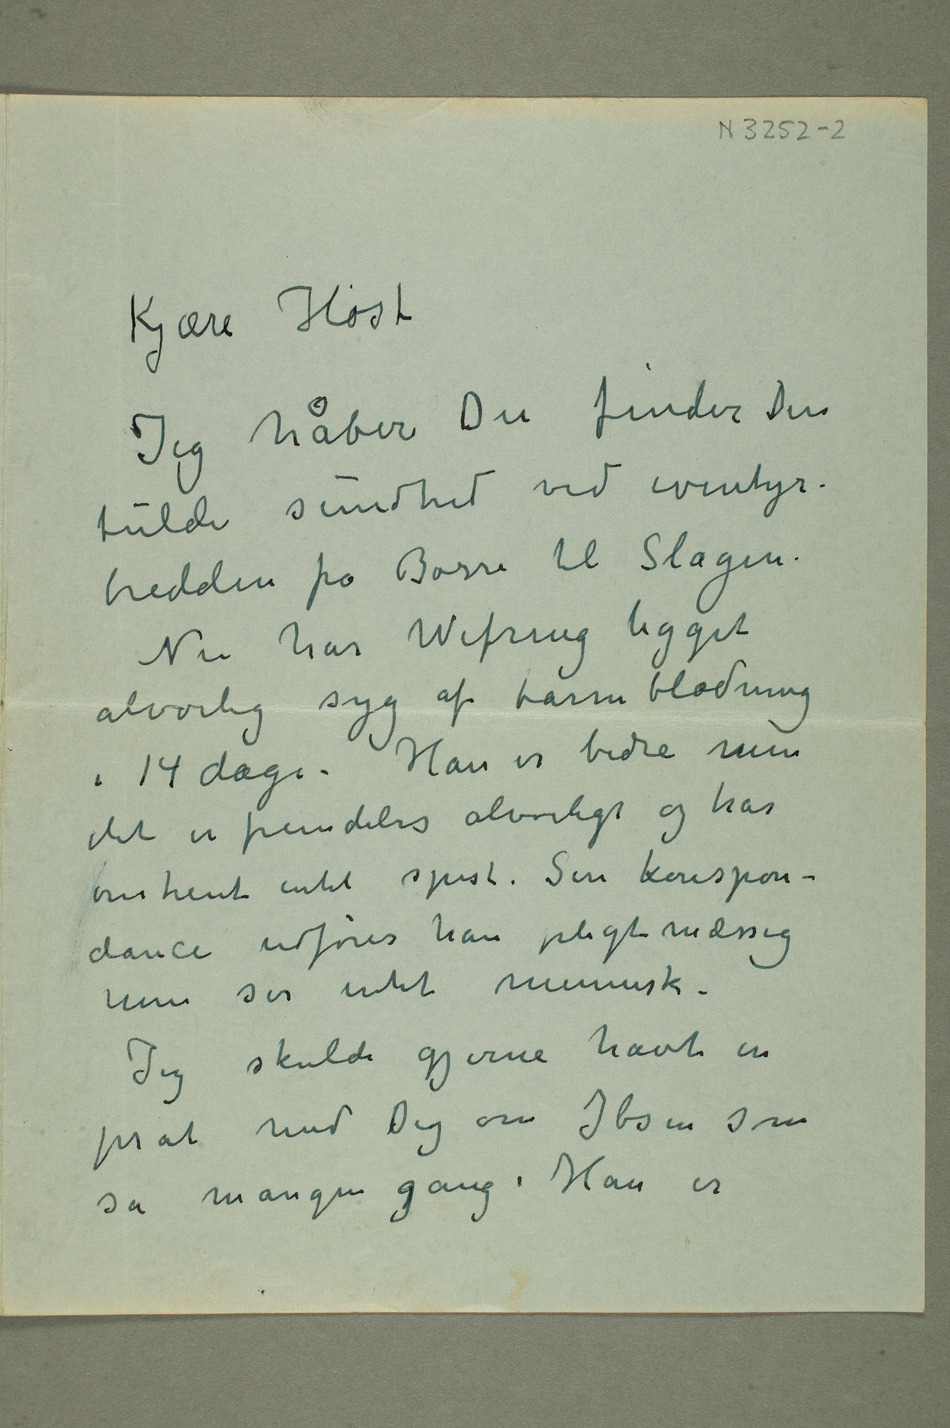 N 3252-2
Kjære Høst
Jeg håber Du finder Din
fulde sundhed ved eventyr-
bredden fra Borre til Slagen.
Nu har Wefring ligget
alvorlig syg af tarmblødning
i 14 dage. Han er bedre men
det er fremdeles alvorligt og har
omtrent intet spist. Sin korrespon-
dance udfører han pligtmæssig
men ser intet menneske.
Jeg skulde gjerne havt en
prat med Dig om Ibsen som
så mangen gang. Han er